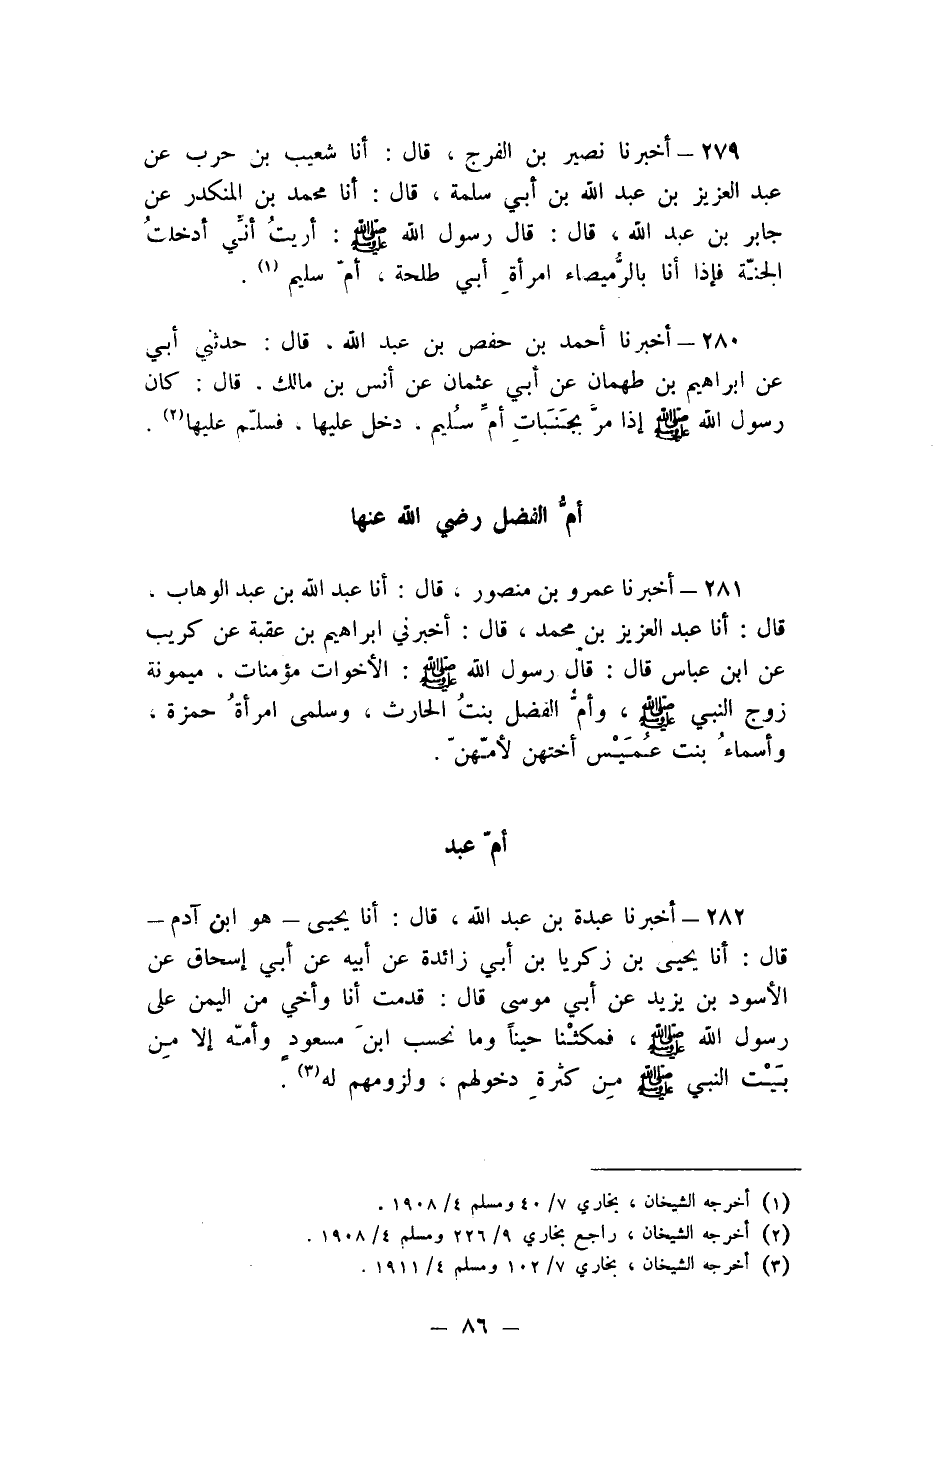 ٢٧٩ – أخبرنا نصير بن الفرج ، قال : أنا شعيب بن حرب عن
عبد العزيز بن عبد الله بن أبي سلمة ، قال : أنا محمد بن المنكدر عن
جابر بن عبد الله ، قال : قال رسول الله ﷺ : أريتُ أنّي أدخلتُ
الجنّة فإذا أنا بالرُّميصاء امرأةِ أبي طلحة ، أمّ سليم (١) .
٢٨٠ – أخبرنا أحمد بن حفص بن عبد الله . قال : حدثني أبي
عن ابراهيم بن طهمان عن أبي عثمان عن أنس بن مالك . قال : كان
رسول الله ﷺ إذا مرَّ بجَنَبَاتِ أمِّ سُليم . دخل عليها . فسلّم عليها(٢) .
أمُّ الفضل رضي الله عنها
٢٨١ – أخبرنا عمرو بن منصور ، قال : أنا عبد الله بن عبد الوهاب .
قال : أنا عبد العزيز بن محمد ، قال : أخبرني ابراهيم بن عقبة عن كريب
عن ابن عباس قال : قال رسول الله ﷺ : الأخوات مؤمنات . ميمونة
زوج النبي ﷺ ، وأمُّ الفضل بنتُ الحارث ، وسلمى امرأةُ حمزة ،
وأسماءُ بنت عُمَيْس أختهن لأمّهنّ .
أمّ عبد
٢٨٢ – أخبرنا عبدة بن عبد الله ، قال : أنا يحيى – هو ابن آدم –
قال : أنا يحيى بن زكريا بن أبي زائدة عن أبيه عن أبي إسحاق عن
الأسود بن يزيد عن أبي موسى قال : قدمت أنا وأخي من اليمن على
رسول الله ﷺ ، فمكثْنا حيناً وما نحسب ابنَ مسعودٍ وأمّه إلا مِن
بَيْت النبي ﷺ مِن كثرةِ دخولهم ، ولزومهم له(٣) .
(١) أخرجه الشيخان ، بخاري ٧/ ٤٠ ومسلم ٤/ ١٩٠٨ .
(٢) أخرجه الشيخان ، راجع بخاري ٩/ ٢٢٦ ومسلم ٤/ ١٩٠٨ .
(٣) أخرجه الشيخان ، بخاري ٧/ ١٠٢ ومسلم ٤/ ١٩١١ .
– ٨٦ –